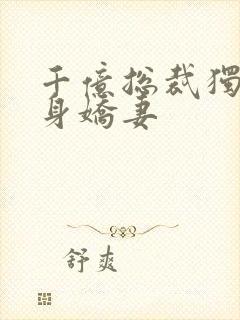 千億總裁獨
身嬌妻
舒爽